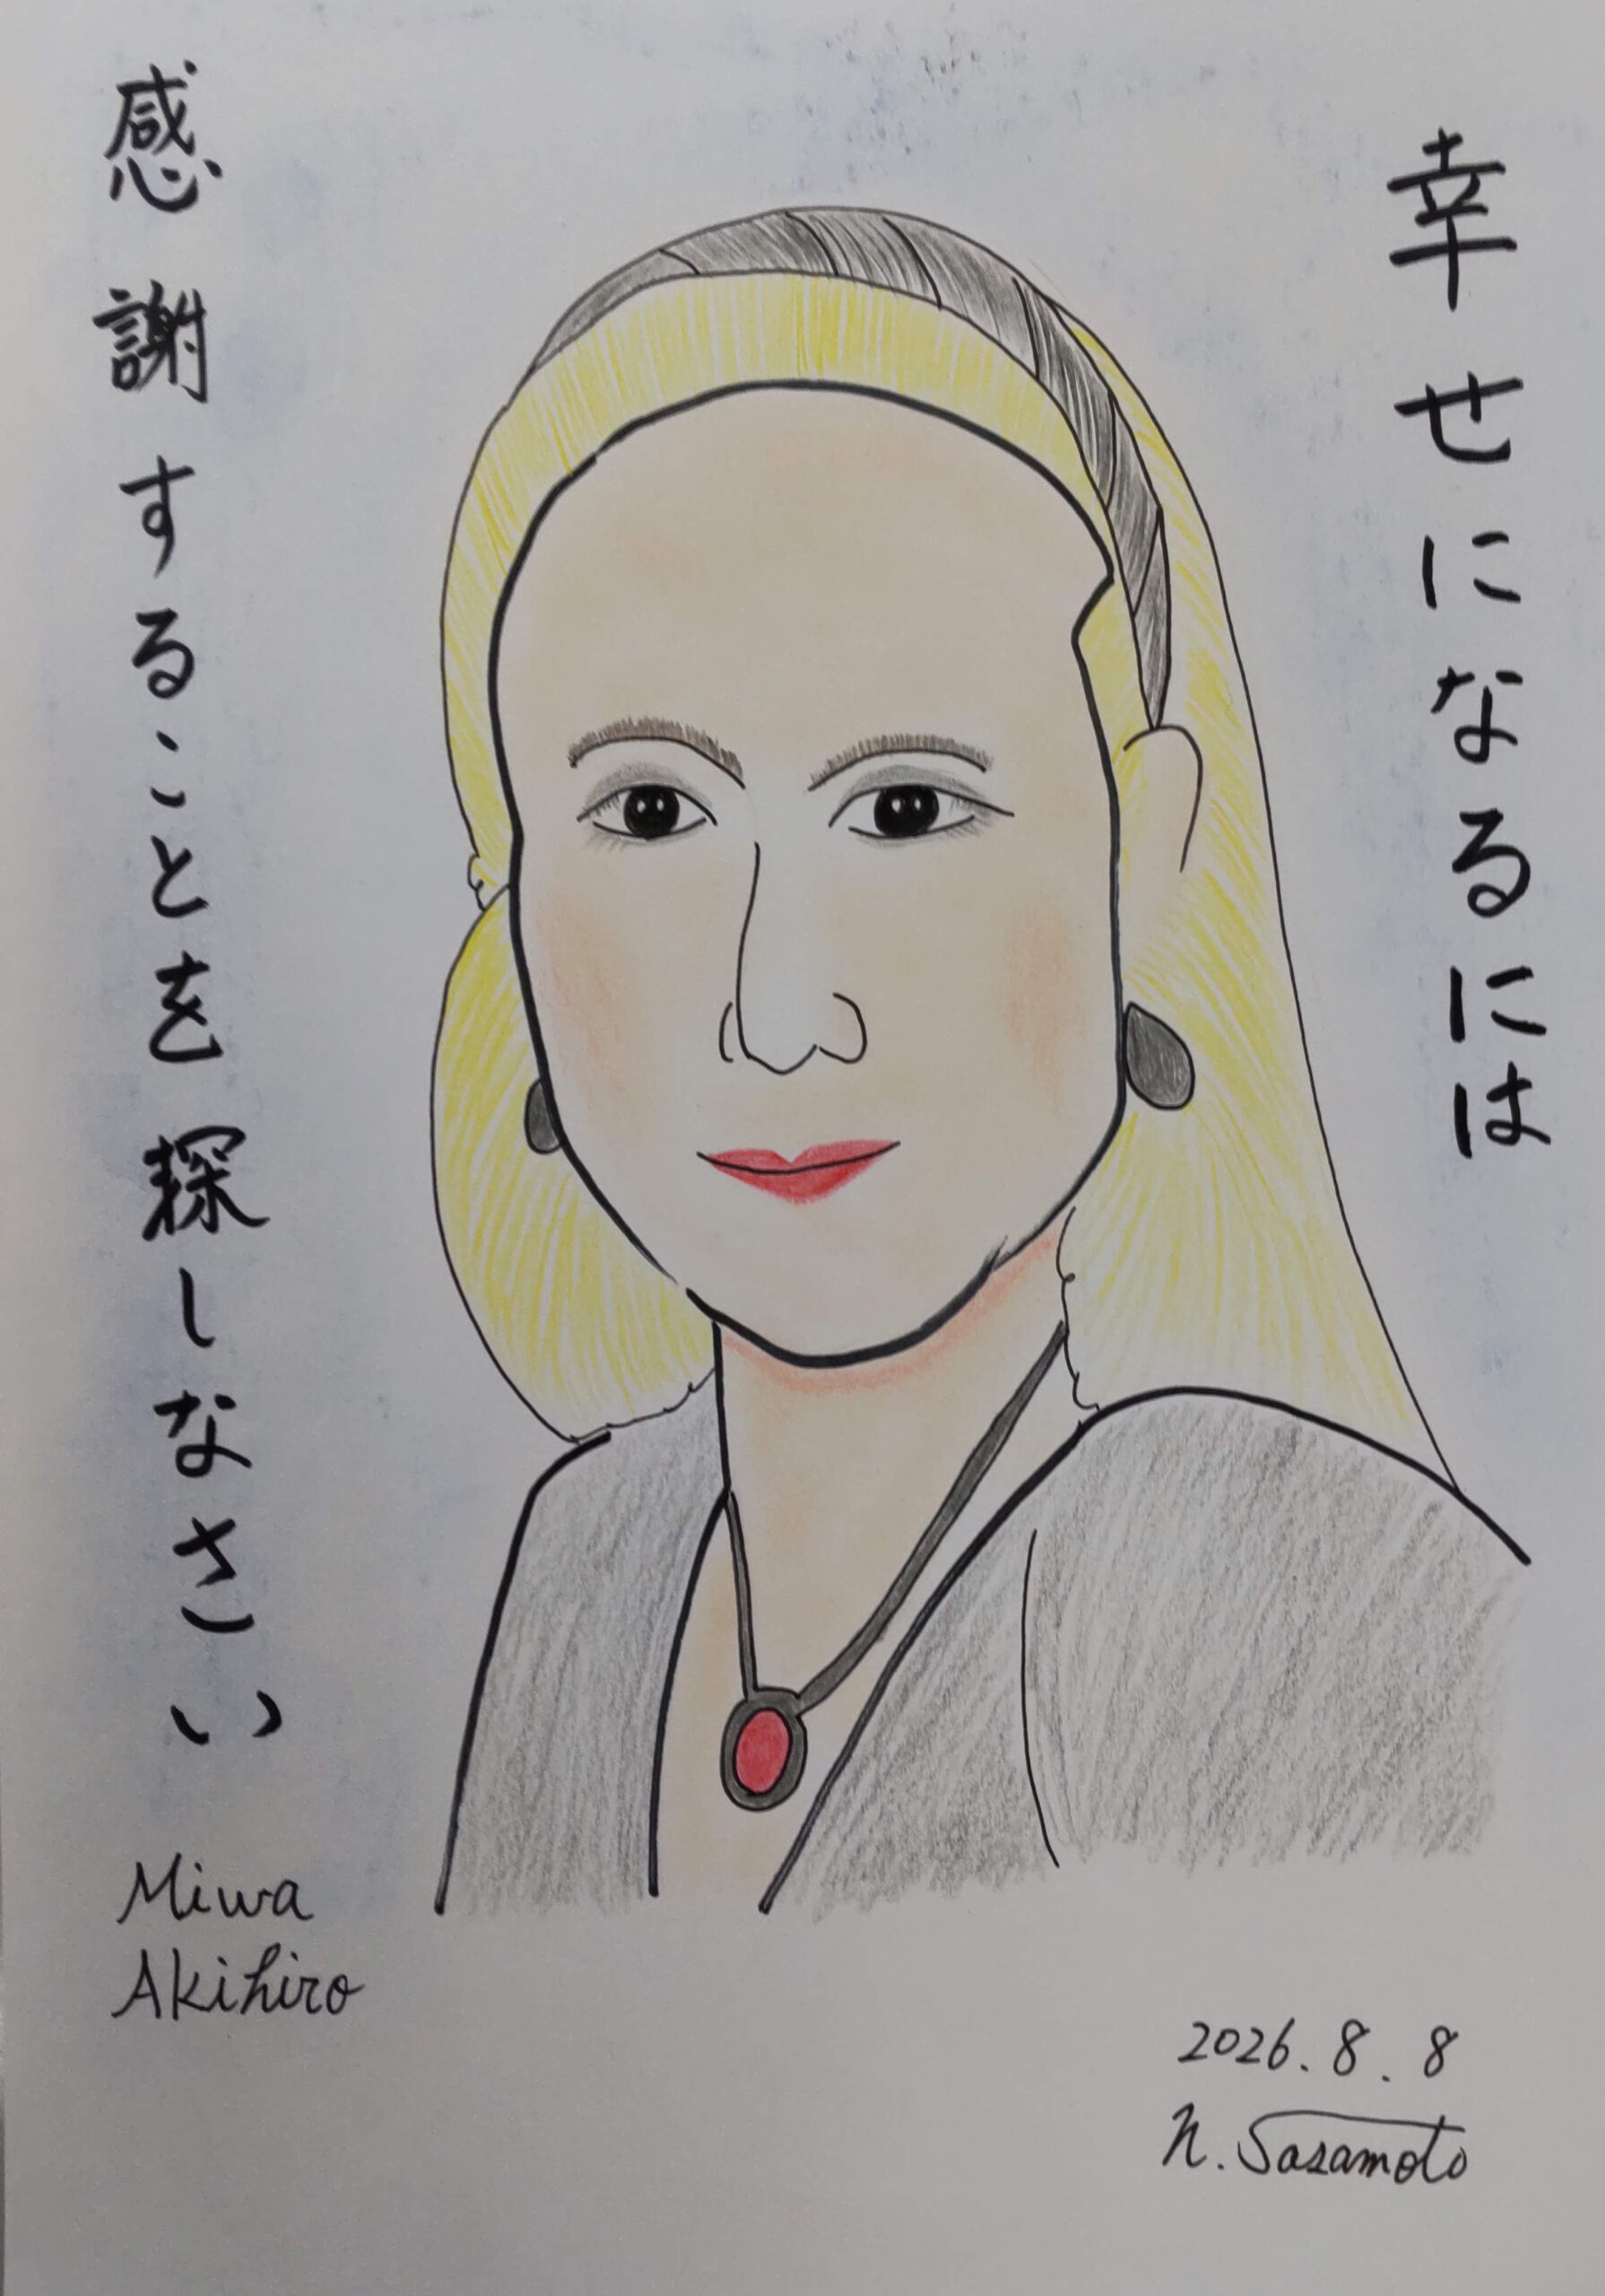 幸せになるには
感謝することを探しなさい
Miwa
Akihiro
2026.8.8
N. Sasamoto